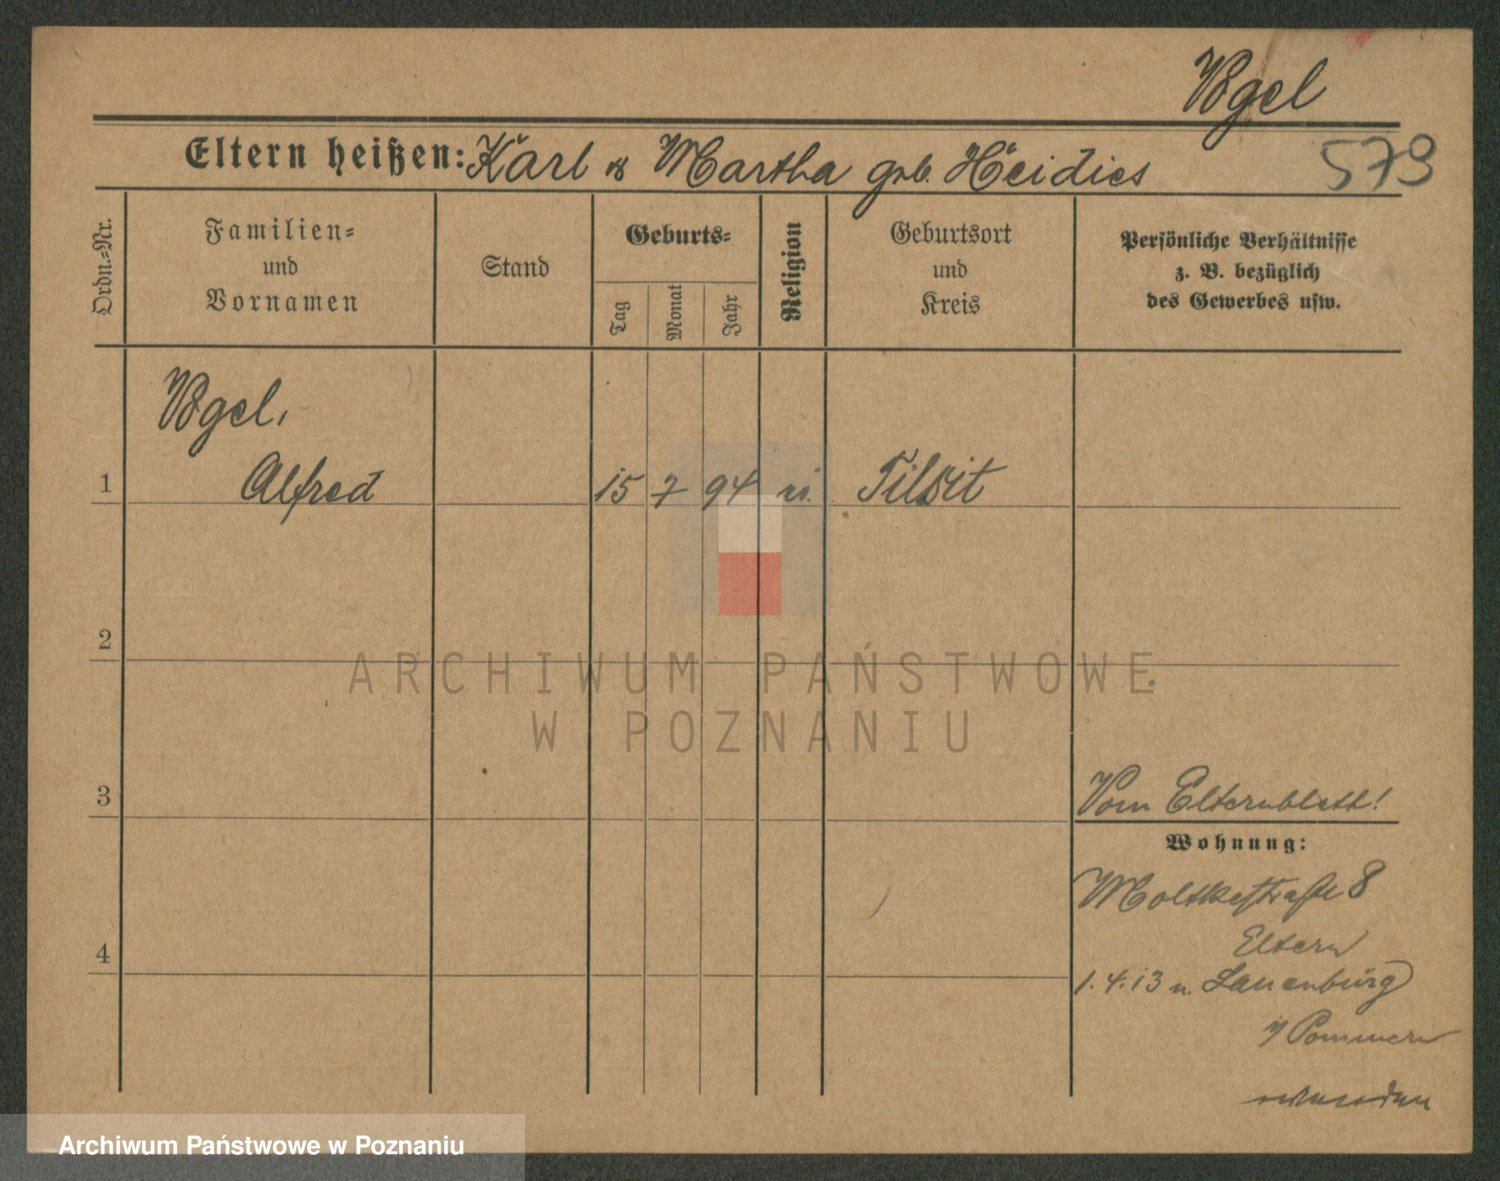 Vogel
Eltern heißen: Karl & Martha geb. Heidies
573
Ordn.-Nr.
Familien-
und
Vornamen
Stand
Geburts-
Tag
Monat
Jahr
Religion
Geburtsort
und
Kreis
Persönliche Verhältnisse
z. B. bezüglich
des Gewerbes usw.
Vogel,
1 Alfred 15 7 94 Tilsit
2
ARCHIWUM PAŃSTWOWE
W POZNANIU
3 Vom Elternblatt!
Wohnung:
Moltkestraße 8
Eltern
4
1.4.13 n. Lauenburg
i/ Pommern
Archiwum Państwowe w Poznaniu